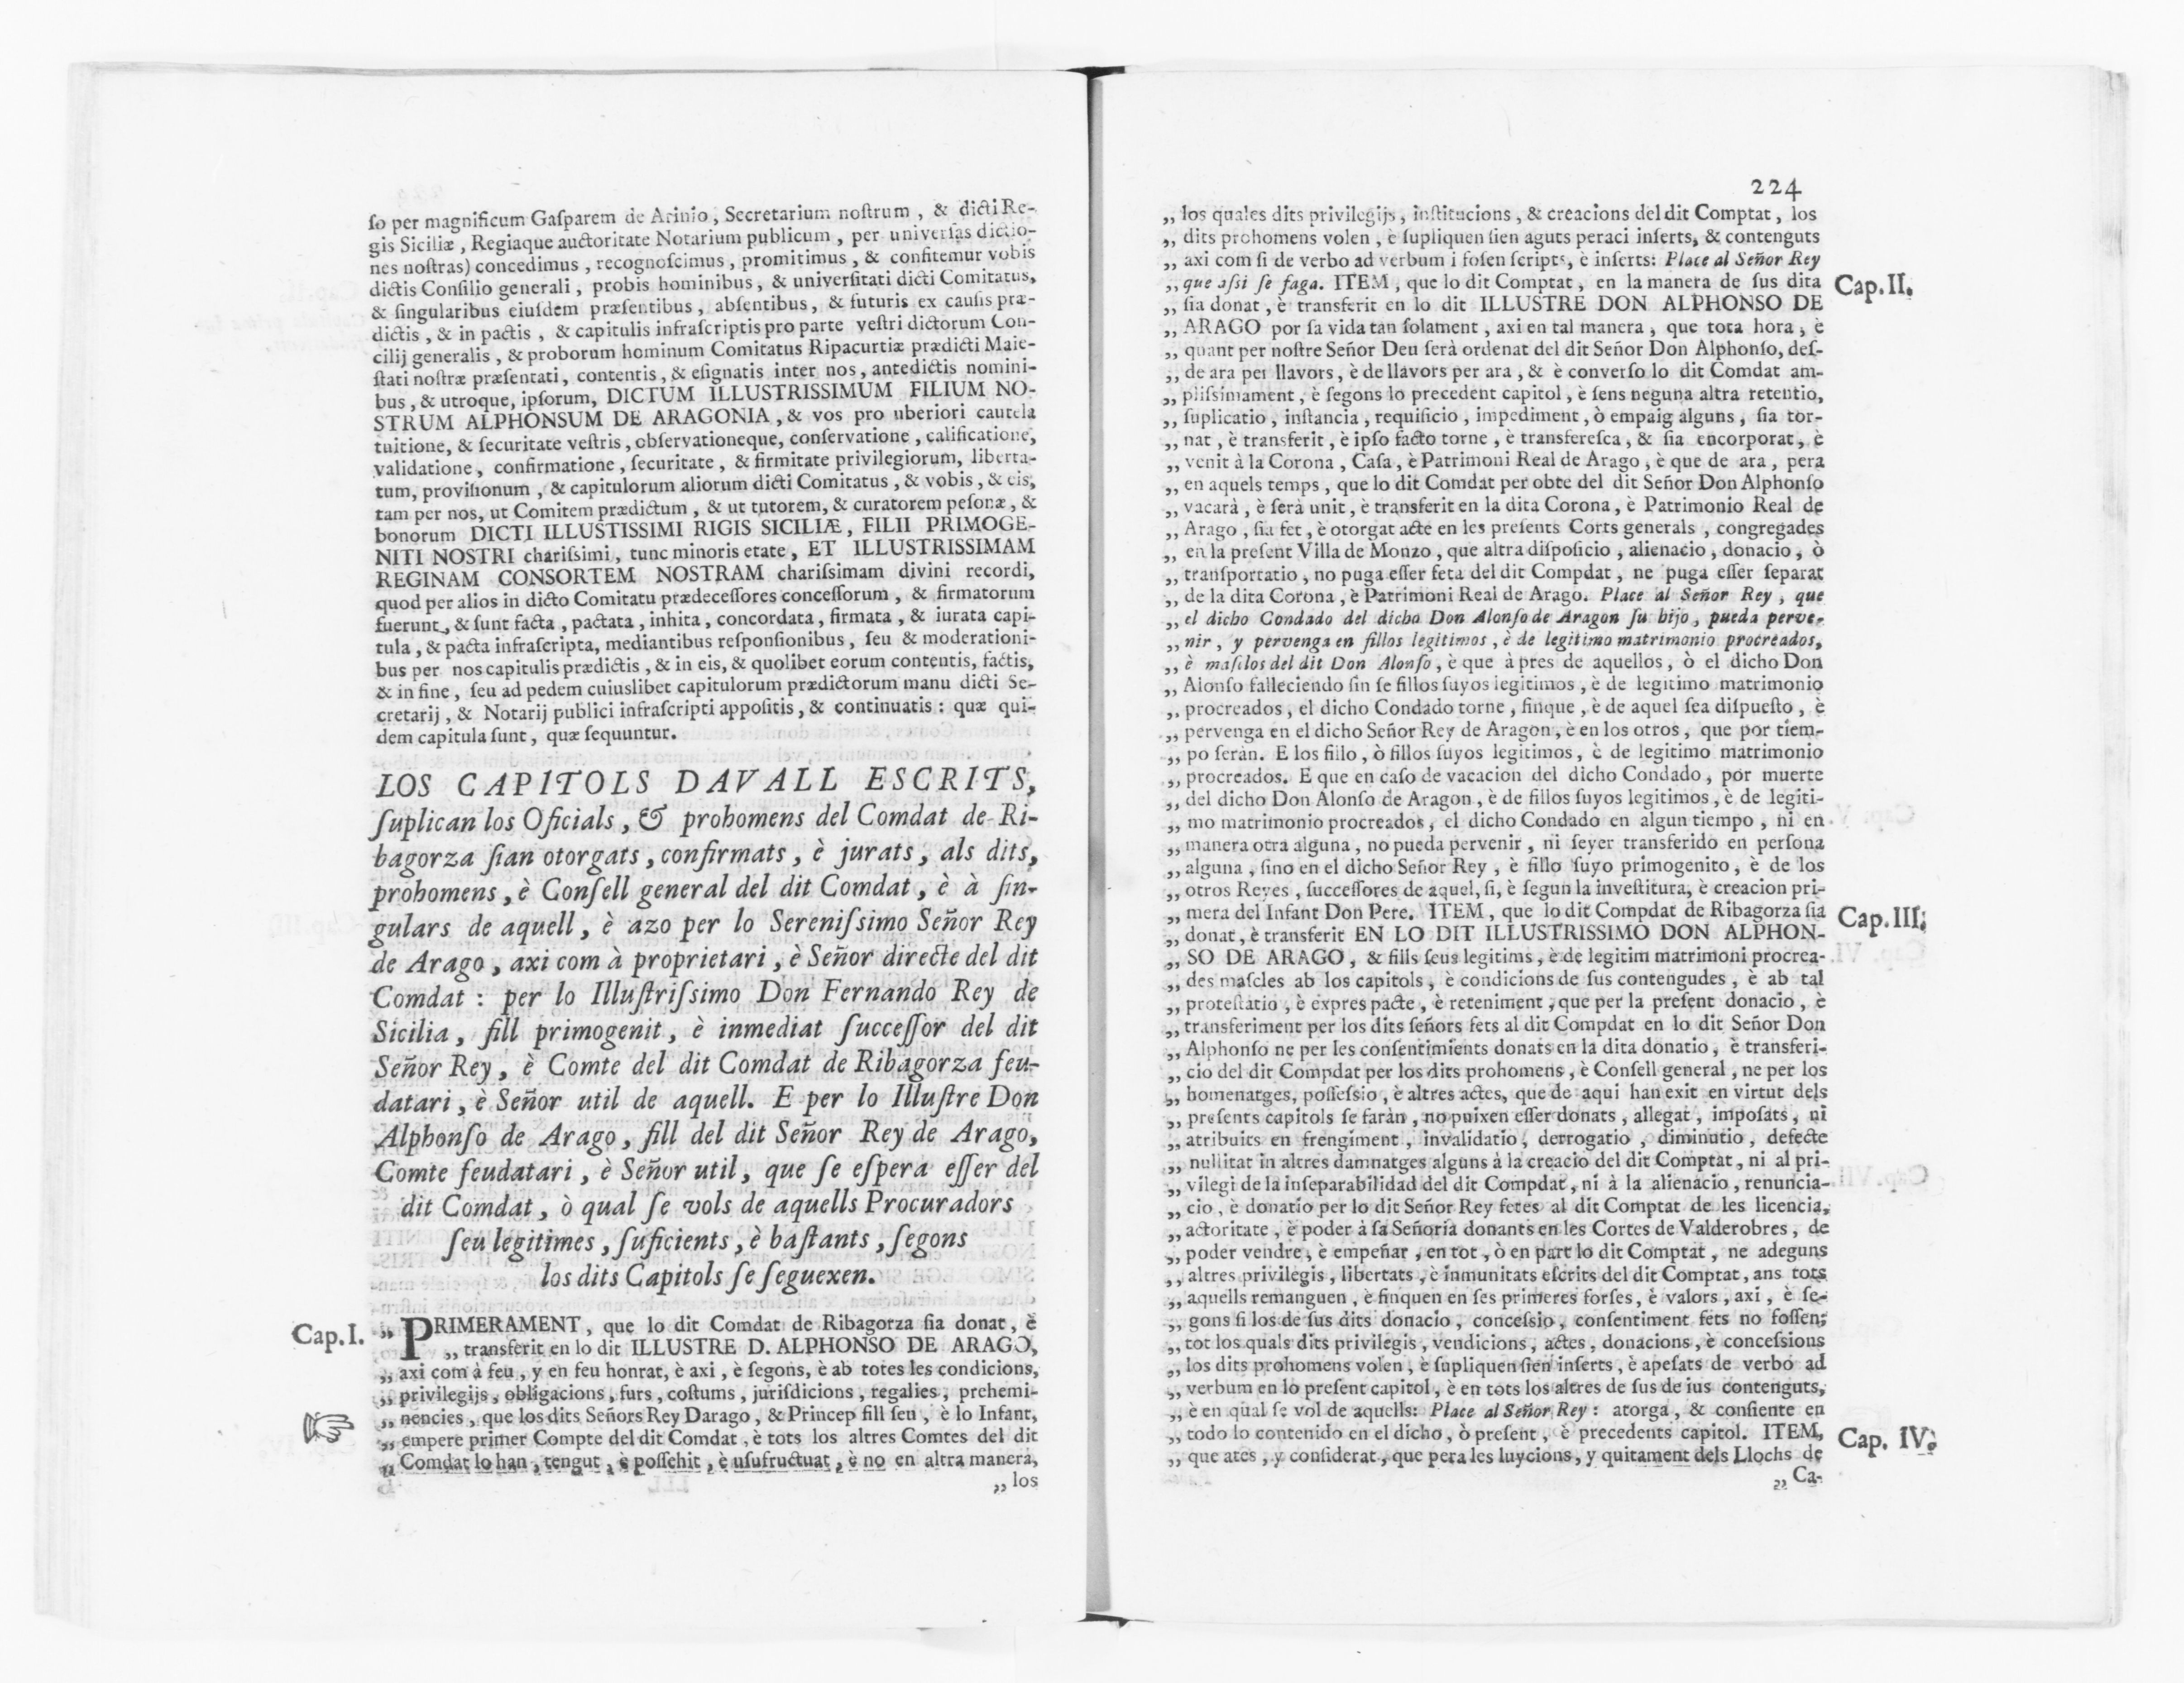 ſo per magnificum Gaſparem de Arinio, Secretarium noſtrum, & dicti Re-
gis Siciliæ, Regiaque auctoritate Notarium publicum, per univerſas dictio-
nes noſtras) concedimus, recognoſcimus, promitimus, & confitemur vobis
dictis Conſilio generali, probis hominibus, & univerſitati dicti Comitatus,
& ſingularibus eiuſdem præſentibus, abſentibus, & futuris ex cauſis præ-
dictis, & in pactis, & capitulis infraſcriptis pro parte veſtri dictorum Con-
cilij generalis, & proborum hominum Comitatus Ripacurtiæ prædicti Maie-
ſtati noſtræ præſentati, contentis, & eſignatis inter nos, antedictis nomini-
bus, & utroque, ipſorum, DICTUM ILLUSTRISSIMUM FILIUM NO-
STRUM ALPHONSUM DE ARAGONIA, & vos pro uberiori cautela
tuitione, & ſecuritate veſtris, obſervationeque, conſervatione, calificatione,
validatione, confirmatione, ſecuritate, & firmitate privilegiorum, liberta-
tum, proviſionum, & capitulorum aliorum dicti Comitatus, & vobis, & eis,
tam per nos, ut Comitem prædictum, & ut tutorem, & curatorem peſonæ, &
bonorum DICTI ILLUSTISSIMI RIGIS SICILIÆ, FILII PRIMOGE-
NITI NOSTRI chariſsimi, tunc minoris etate, ET ILLUSTRISSIMAM
REGINAM CONSORTEM NOSTRAM chariſsimam divini recordi,
quod per alios in dicto Comitatu prædeceſſores conceſſorum, & firmatorum
fuerunt, & ſunt facta, pactata, inhita, concordata, firmata, & iurata capi-
tula, & pacta infraſcripta, mediantibus reſponſionibus, ſeu & moderationi-
bus per nos capitulis prædictis, & in eis, & quolibet eorum contentis, factis,
& in fine, ſeu ad pedem cuiuslibet capitulorum prædictorum manu dicti Se-
cretarij, & Notarij publici infraſcripti appoſitis, & continuatis: quæ qui-
dem capitula ſunt, quæ ſequuntur.
LOS CAPITOLS DAVALL ESCRITS,
ſuplican los Oficials, & prohomens del Comdat de Ri-
bagorza ſian otorgats, confirmats, è jurats, als dits,
prohomens, è Conſell general del dit Comdat, è à ſin-
gulars de aquell, è azo per lo Sereniſsimo Señor Rey
de Arago, axi com à proprietari, è Señor directe del dit
Comdat: per lo Illuſtriſsimo Don Fernando Rey de
Sicilia, fill primogenit, è inmediat ſucceſſor del dit
Señor Rey, è Comte del dit Comdat de Ribagorza feu-
datari, è Señor util de aquell. E per lo Illuſtre Don
Alphonſo de Arago, fill del dit Señor Rey de Arago,
Comte feudatari, è Señor util, que ſe eſpera eſſer del
dit Comdat, ò qual ſe vols de aquells Procuradors
ſeu legitimes, ſuficients, è baſtants, ſegons
los dits Capitols ſe ſeguexen.
Cap. I.
„ PRIMERAMENT, que lo dit Comdat de Ribagorza ſia donat, è
„ transferit en lo dit ILLUSTRE D. ALPHONSO DE ARAGO,
„ axi com à feu, y en feu honrat, è axi, è ſegons, è ab totes les condicions,
„ privilegijs, obligacions, furs, coſtums, juriſdicions, regalies, prehemi-
„ nencies, que los dits Señors Rey Darago, & Princep fill ſeu, è lo Infant,
„ empere primer Compte del dit Comdat, è tots los altres Comtes del dit
„ Comdat lo han, tengut, è poſſehit, è uſufructuat, è no en altra manera,
„ los
224
„ los quales dits privilegijs, inſtitucions, & creacions del dit Comptat, los
„ dits prohomens volen, è ſupliquen ſien aguts peraci inſerts, & contenguts
„ axi com ſi de verbo ad verbum i foſen ſcripts, è inſerts: Place al Señor Rey
„ que aſsi ſe faga. ITEM, que lo dit Comptat, en la manera de ſus dita
Cap. II.
„ ſia donat, è transferit en lo dit ILLUSTRE DON ALPHONSO DE
„ ARAGO por ſa vida tan ſolament, axi en tal manera, que tota hora, è
„ quant per noſtre Señor Deu ſerà ordenat del dit Señor Don Alphonſo, deſ-
„ de ara per llavors, è de llavors per ara, & è converſo lo dit Comdat am-
„ pliſsimament, è ſegons lo precedent capitol, è ſens neguna altra retentio,
„ ſuplicatio, inſtancia, requiſicio, impediment, ò empaig alguns, ſia tor-
„ nat, è transferit, è ipſo facto torne, è transfereſca, & ſia encorporat, è
„ venit à la Corona, Caſa, è Patrimoni Real de Arago, è que de ara, pera
„ en aquels temps, que lo dit Comdat per obte del dit Señor Don Alphonſo
„ vacarà, è ſerà unit, è transferit en la dita Corona, è Patrimonio Real de
„ Arago, ſia fet, è otorgat acte en les preſents Corts generals, congregades
„ en la preſent Villa de Monzo, que altra diſpoſicio, alienacio, donacio, ò
„ tranſportatio, no puga eſſer feta del dit Compdat, ne puga eſſer ſeparat
„ de la dita Corona, è Patrimoni Real de Arago. Place al Señor Rey, que
„ el dicho Condado del dicho Don Alonſo de Aragon ſu hijo, pueda perve-
„ nir, y pervenga en fillos legitimos, è de legitimo matrimonio procreados,
„ è maſclos del dit Don Alonſo, è que à pres de aquellos, ò el dicho Don
„ Alonſo falleciendo ſin ſe fillos ſuyos legitimos, è de legitimo matrimonio
„ procreados, el dicho Condado torne, finque, è de aquel ſea diſpueſto, è
„ pervenga en el dicho Señor Rey de Aragon, è en los otros, que por tiem-
„ po ſeràn. E los fillo, ò fillos ſuyos legitimos, è de legitimo matrimonio
„ procreados. E que en caſo de vacacion del dicho Condado, por muerte
„ del dicho Don Alonſo de Aragon, è de fillos ſuyos legitimos, è de legiti-
„ mo matrimonio procreados, el dicho Condado en algun tiempo, ni en
„ manera otra alguna, no pueda pervenir, ni ſeyer transferido en perſona
„ alguna, ſino en el dicho Señor Rey, è fillo ſuyo primogenito, è de los
„ otros Reyes, ſucceſſores de aquel, ſi, è ſegun la inveſtitura, è creacion pri-
„ mera del Infant Don Pere. ITEM, que lo dit Compdat de Ribagorza ſia
Cap. III.
„ donat, è transferit EN LO DIT ILLUSTRISSIMO DON ALPHON-
„ SO DE ARAGO, & fills ſeus legitims, è de legitim matrimoni procrea-
„ des maſcles ab los capitols, è condicions de ſus contengudes, è ab tal
„ proteſtatio, è expres pacte, è reteniment, que per la preſent donacio, è
„ transferiment per los dits ſeñors fets al dit Compdat en lo dit Señor Don
„ Alphonſo ne per les conſentimients donats en la dita donatio, è transferi-
„ cio del dit Compdat per los dits prohomens, è Conſell general, ne per los
„ homenatges, poſſeſsio, è altres actes, que de aqui han exit en virtut dels
„ preſents capitols ſe faràn, no puixen eſſer donats, allegat, impoſats, ni
„ atribuits en frengiment, invalidatio, derrogatio, diminutio, defecte
„ nullitat in altres damnatges alguns à la creacio del dit Comptat, ni al pri-
„ vilegi de la inſeparabilidad del dit Compdat, ni à la alienacio, renuncia-
„ cio, è donatio per lo dit Señor Rey fetes al dit Comptat de les licencia,
„ actoritate, è poder à ſa Señoria donants en les Cortes de Valderobres, de
„ poder vendre, è empeñar, en tot, ò en part lo dit Comptat, ne adeguns
„ altres privilegis, libertats, è inmunitats eſcrits del dit Comptat, ans tots
„ aquells remanguen, è finquen en ſes primeres forſes, è valors, axi, è ſe-
„ gons ſi los de ſus dits donacio, conceſsio, conſentiment fets no foſſen;
„ tot los quals dits privilegis, vendicions, actes, donacions, è conceſsions
„ los dits prohomens volen, è ſupliquen ſien inſerts, è apeſats de verbo ad
„ verbum en lo preſent capitol, è en tots los altres de ſus de ius contenguts,
„ è en qual ſe vol de aquells: Place al Señor Rey: atorga, & conſiente en
„ todo lo contenido en el dicho, ò preſent, è precedents capitol. ITEM,
Cap. IV.
„ que ates, y conſiderat, que pera les luycions, y quitament dels Llochs de
„ Ca-